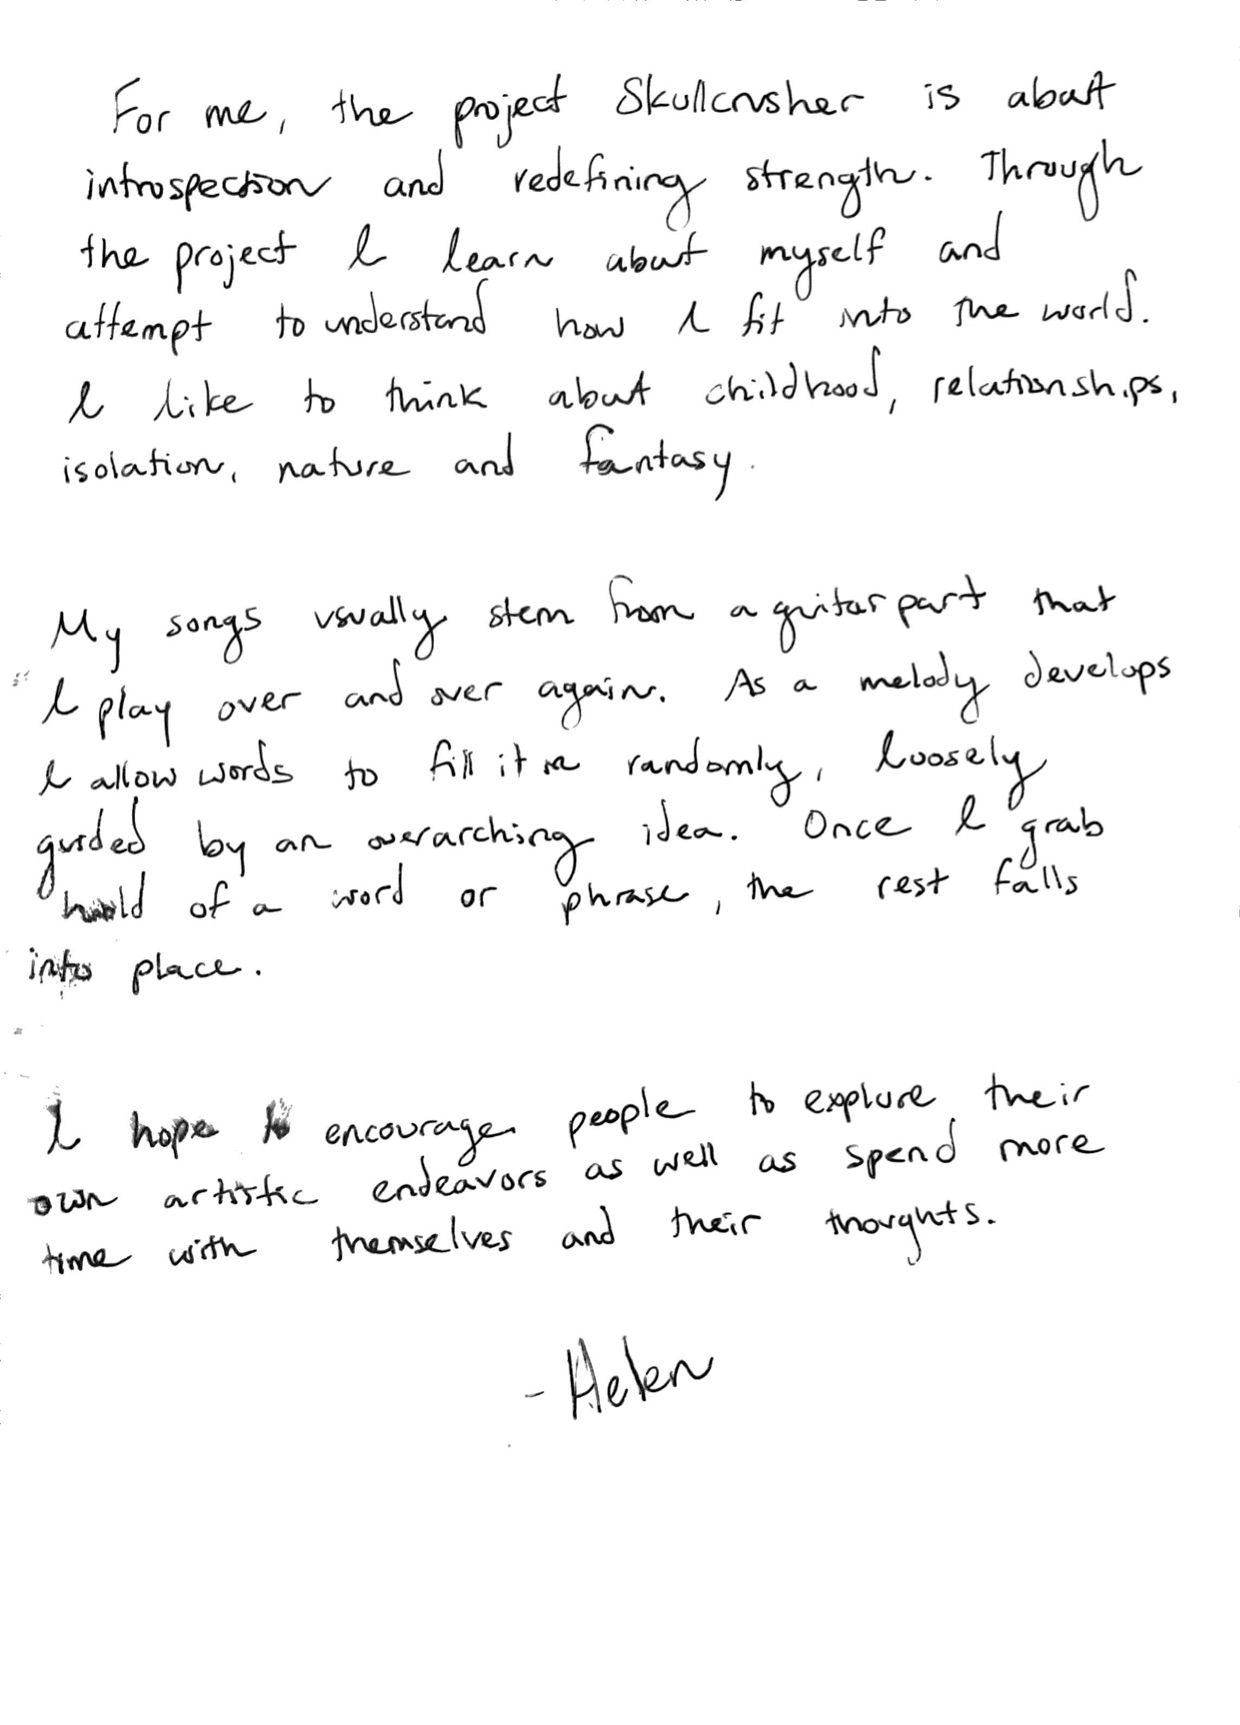 For me, the project Skullcrusher is about
introspection and redefining strength. Through
the project I learn about myself and
attempt to understand how I fit into the world.
I like to think about childhood, relationships,
isolation, nature and fantasy.
My songs usually stem from a guitar part that
I play over and over again. As a melody develops
I allow words to fill it in randomly, loosely
guided by an overarching idea. Once I grab
hold of a word or phrase, the rest falls
into place.
I hope to encourage people to explore their
own artistic endeavors as well as spend more
time with themselves and their thoughts.
- Helen